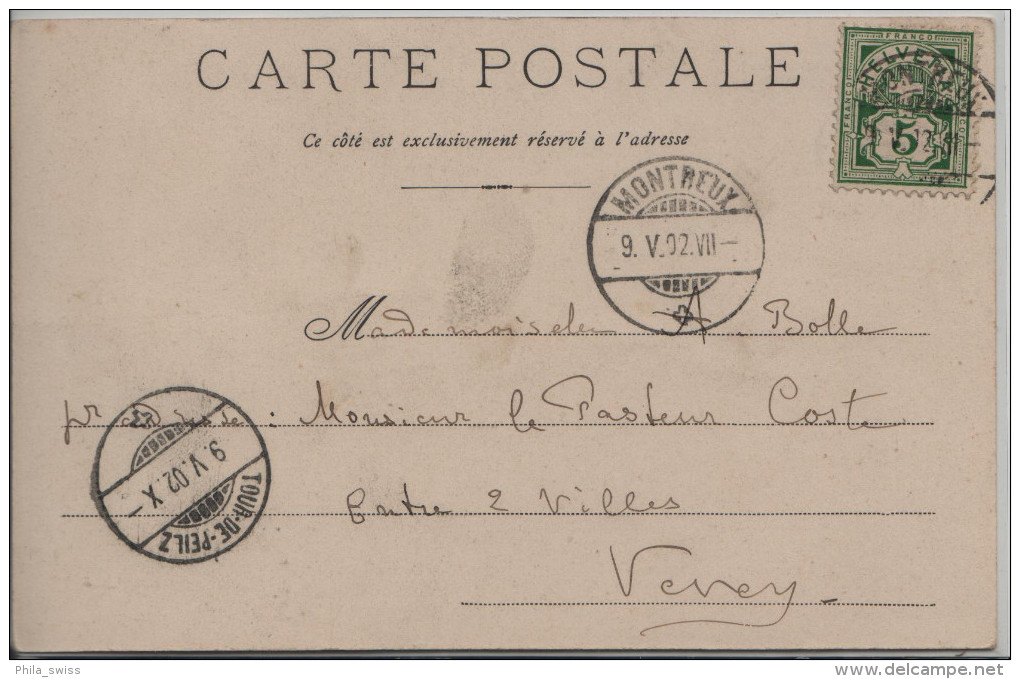 CARTE POSTALE
Ce côté est exclusivement réservé à l'adresse
FRANCO
HELVETIA
FRANCO
FRANCO
5
MONTREUX
9. V. 02. VII –
Mademoiselle A. Bolle
pr adresse : Monsieur le Pasteur Coste
9. V. 02. X –
TOUR-DE-PEILZ
Entre 2 Villes
Vevey
Phila_swiss
delcampe.net